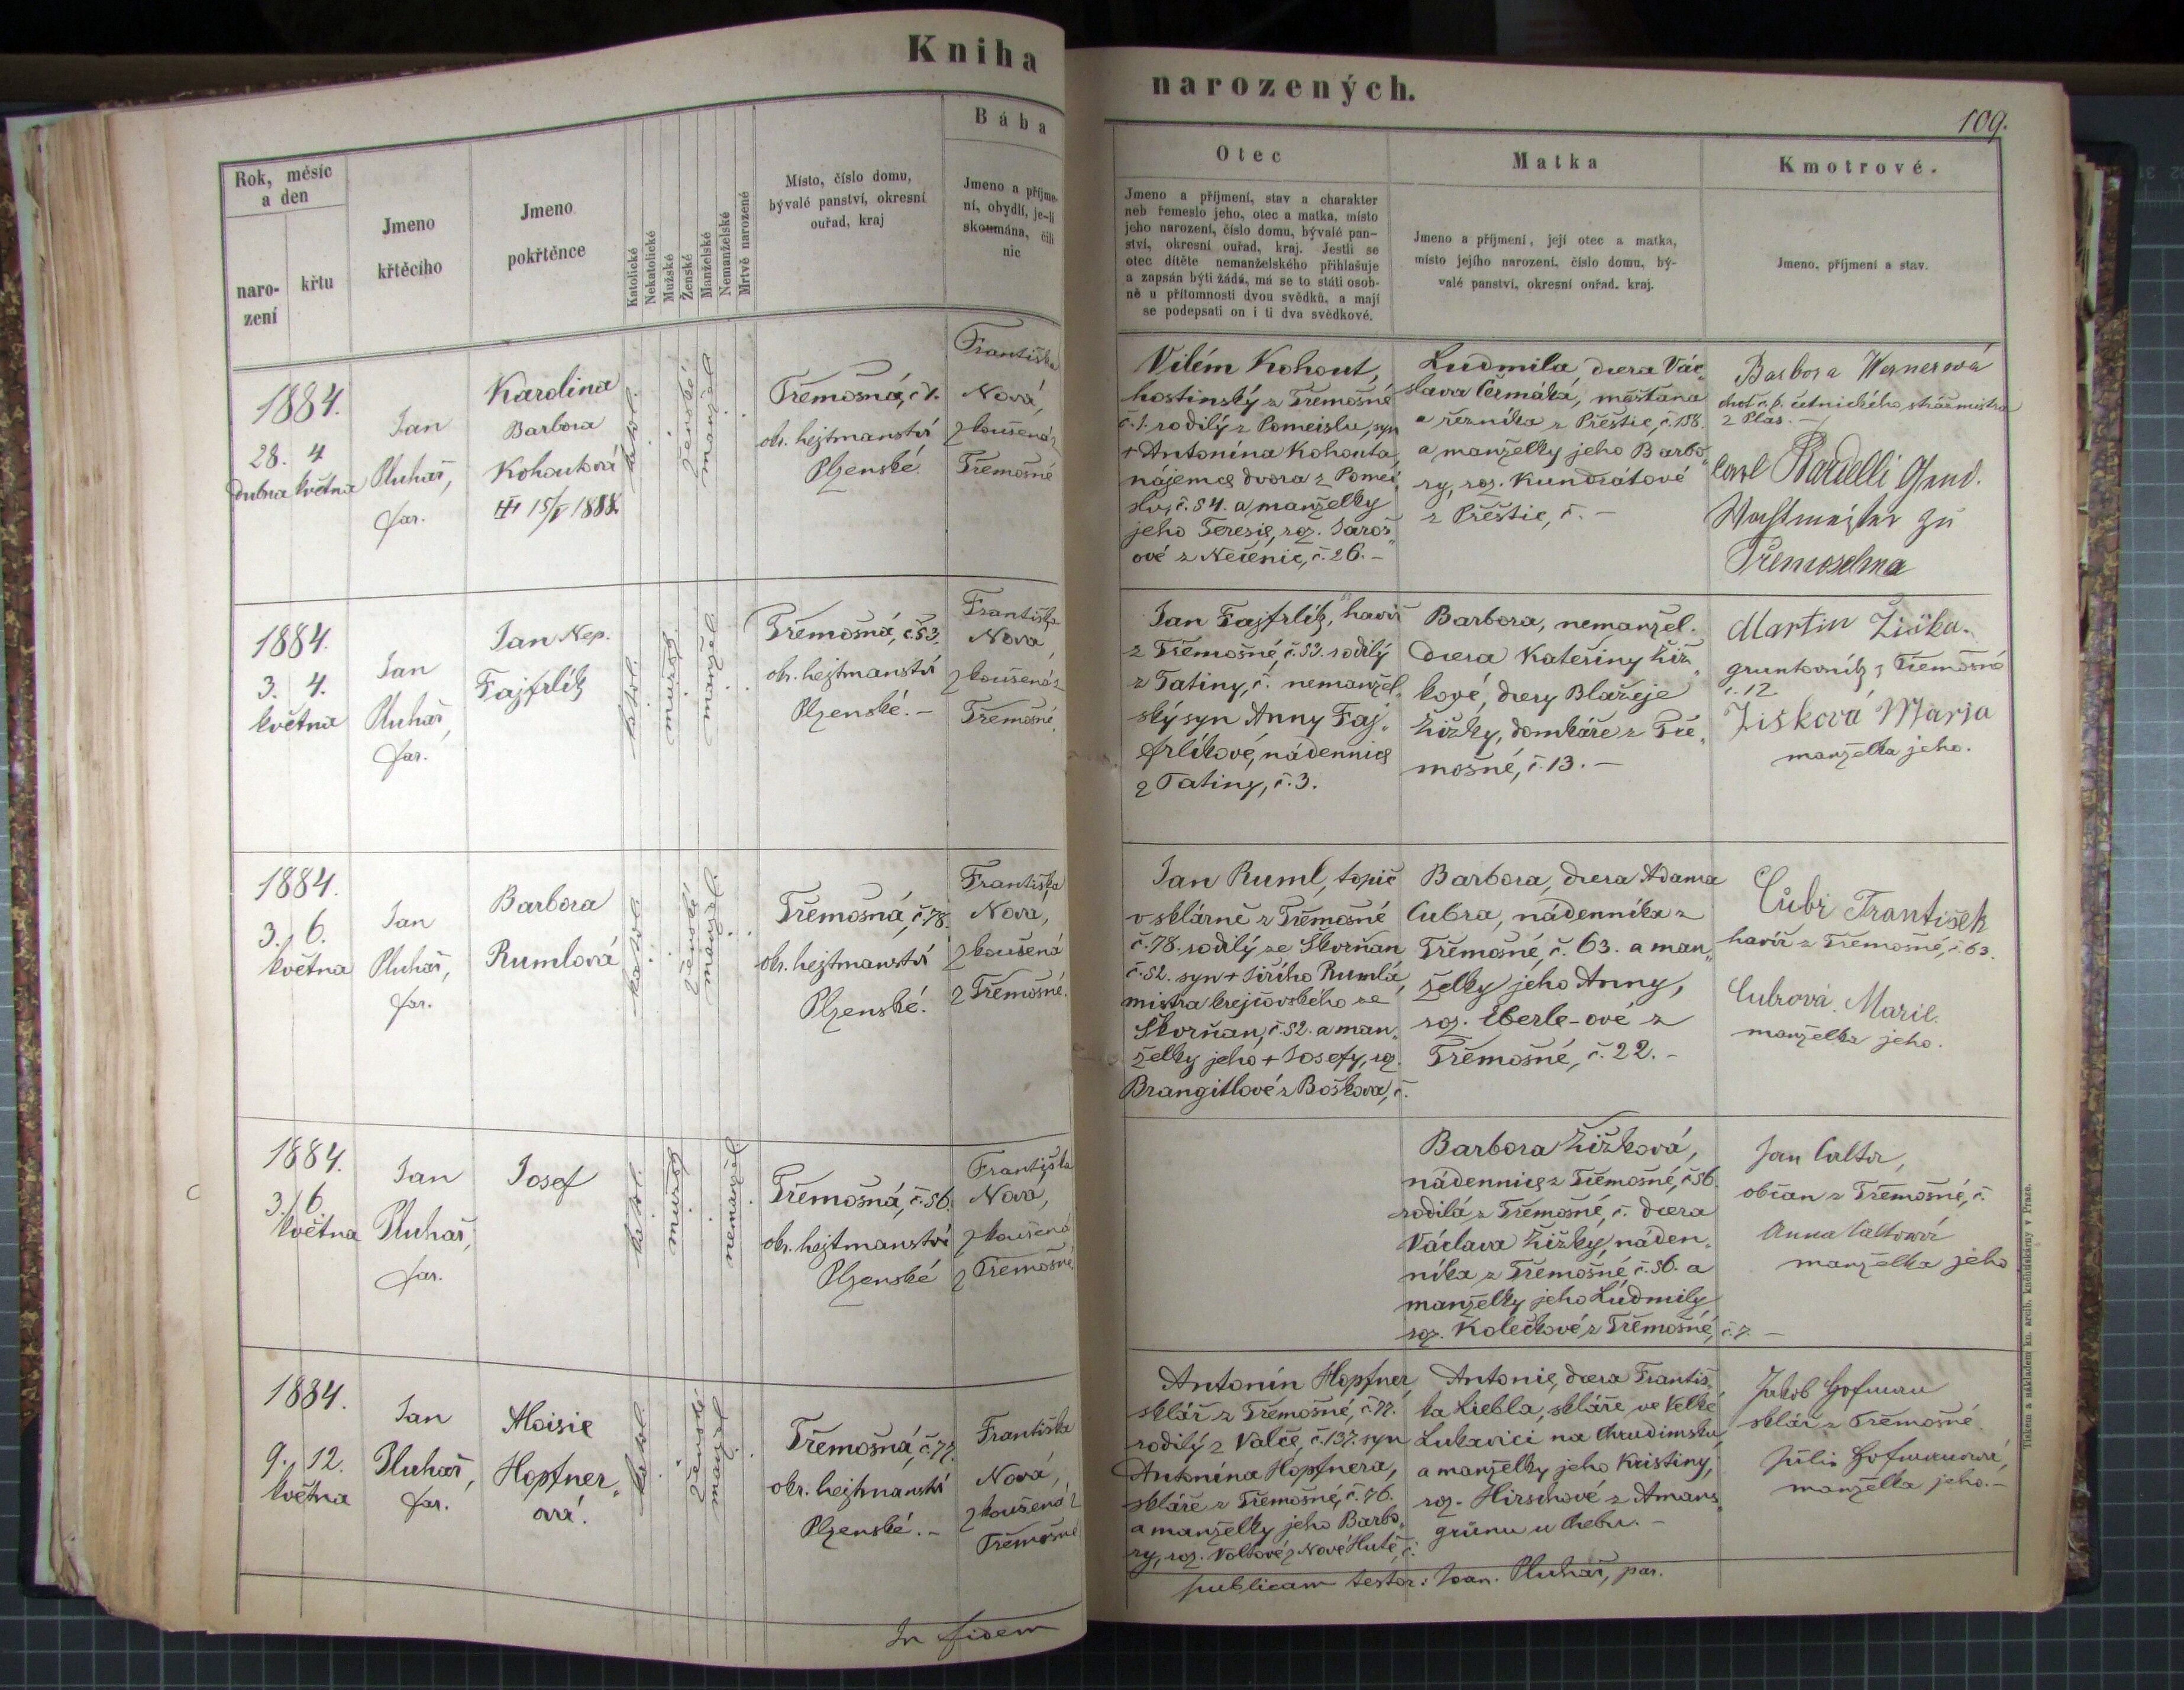 Kniha
narozených.
109.
Rok, měsíc
a den
naro-
zení
křtu
Jmeno
křtěcího
Jmeno
pokřtěnce
Katolické
Nekatolické
Mužské
Ženské
Manželské
Nemanželské
Mrtvě narozené
Místo, číslo domu,
bývalé panství, okresní
ouřad, kraj
Bába
Jmeno a příjme-
ní, obydlí, je-li
skoumána, čili
nic
Otec
Jmeno a příjmení, stav a charakter
neb řemeslo jeho, otec a matka, místo
jeho narození, číslo domu, bývalé pan-
ství, okresní ouřad, kraj. Jestli se
otec dítěte nemanželského přihlašuje
a zapsán býti žádá, má se to státi osob-
ně u přítomnosti dvou svědků, a mají
se podepsati on i ti dva svědkové.
Matka
Jmeno a příjmení, její otec a matka,
místo jejího narození, číslo domu, bý-
valé panství, okresní ouřad, kraj.
Kmotrové.
Jmeno, příjmení a stav.
1884.
28. 4
dubna května
Jan
Pluhař,
far.
Karolina
Barbora
Kohoutová
15/V 1888.
katol.
ženské
manžel.
Třemošná, č 1.
okr. hejtmanství
Plzenské.
Františka
Nová,
zkoušená z
Třemošné
Vilém Kohout,
hostinský z Třemošné
č. 1. rodilý z Pomeislu, syn
+ Antonína Kohouta,
nájemce dvora z Pomei„
slu, č. 54. a manželky
jeho Teresie, roz. Jaroš„
ové z Nečenic, č. 26. –
Ludmila dcera Vác„
slava Čermáka, měšťana
a řezníka z Přeštic, č. 158.
a manželky jeho Barbo„
ry, roz. Kundrátové
z Přeštic, č. –
Barbora Wernerová
choť c. k. četnického strážmistra
z Plas. –
Carl Bardelli Gend.
Wachtmeister zu
Třemoschna
1884.
3. 4.
května
Jan
Pluhař,
far.
Jan Nep.
Fajfrlík
katol.
mužské
manžel.
Třemošná, č. 53.
okr. hejtmanství
Plzenské. –
Františka
Nová,
zkoušená z
Třemošné.
Jan Fajfrlík, havíř
z Třemošné, č. 53. rodilý
z Tatiny, č. nemanžel„
ský syn Anny Faj„
frlíkové, nádennice
z Tatiny, č. 3.
Barbora, nemanžel.
dcera Kateřiny Žiž„
kové, dcery Blažeje
Žižky, domkáře z Tře„
mošné, č. 13. –
Martin Žiška.
gruntovník z Třemošné
č. 12
Žisková Marja
manželka jeho.
1884.
3. 6.
května
Jan
Pluhař,
far.
Barbora
Rumlová
katol.
ženské
manžel.
Třemošná, č. 78.
okr. hejtmanství
Plzenské.
Františka
Nová,
zkoušená
z Třemošné.
Jan Ruml, topič
v sklárně z Třemošné
č. 78. rodilý ze Škorňan
č. 52. syn + Jiřího Rumla,
mistra krejčovského ze
Škorňan, č. 52. a man„
želky jeho + Josefy, roz.
Brangitlové z Boškova, č.
Barbora, dcera Adama
Cubra, nádenníka z
Třemošné, č. 63. a man„
želky jeho Anny,
roz. Eberle-ové z
Třemošné, č. 22. –
Cubr František
havíř z Třemošné, č. 63.
Cubrová Marie.
manželka jeho.
1884.
3. 6.
května
Jan
Pluhař,
far.
Josef
katol.
mužské
nemanžel.
Třemošná, č. 56.
okr. hejtmanství
Plzenské
Františka
Nová,
zkoušená
z Třemošné.
Barbora Žižková,
nádennice z Třemošné, č 56.
rodilá z Třemošné, č. dcera
Václava Žižky, náden„
níka z Třemošné č. 56. a
manželky jeho Ludmily
roz. Kolečkové z Třemošné, č. 7. –
Jan Calta,
občan z Třemošné, č.
Anna Caltová
manželka jeho
1884.
9. 12.
května
Jan
Pluhař,
far.
Aloisie
Hopfner„
ová.
katol.
ženské
manžel.
Třemošná, č. 77.
okr. hejtmanství
Plzenské. –
Františka
Nová,
zkoušená z
Třemošné
Antonín Hopfner,
sklář z Třemošné, č. 77.
rodilý z Valče, č. 137. syn
Antonína Hopfnera,
skláře z Třemošné, č. 76.
a manželky jeho Barbo„
ry, roz. Voltové z Nové Hutě, č.
Antonie, dcera Františ„
ka Liebla, skláře ve Velké
Lukavici na Chrudimsku
a manželky jeho Kristiny,
roz. Hirschové z Amans„
grünu u Chebu. –
Jakob Hofman
sklář z Třemošné
Julie Hofmanová,
manželka jeho. –
In fidem
publicam testor: Joan. Pluhař, par.
Tiskem a nákladem kn. arcib. knihtiskárny v Praze.